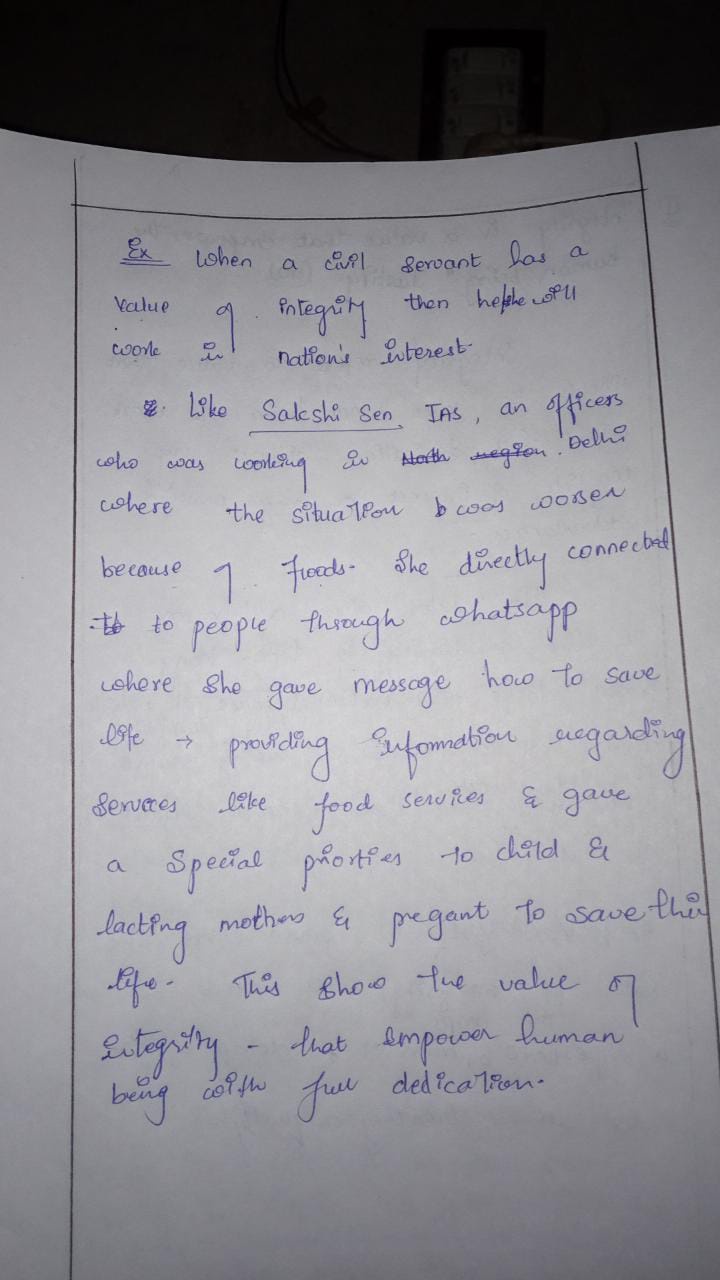 Ex When a civil servant has a
value of integrity then he/she will
work in nation's interest.
Like Sakshi Sen, IAS, an officers
who was working in North region. Delhi
where the situation was worsen
because of floods. She directly connected
to people through whatsapp
where she gave message how to save
life → providing information regarding
services like food services & gave
a special priorties to child &
lacting mothers & pregant to save this
life. This show the value of
integrity - that empower human
being with full dedication.